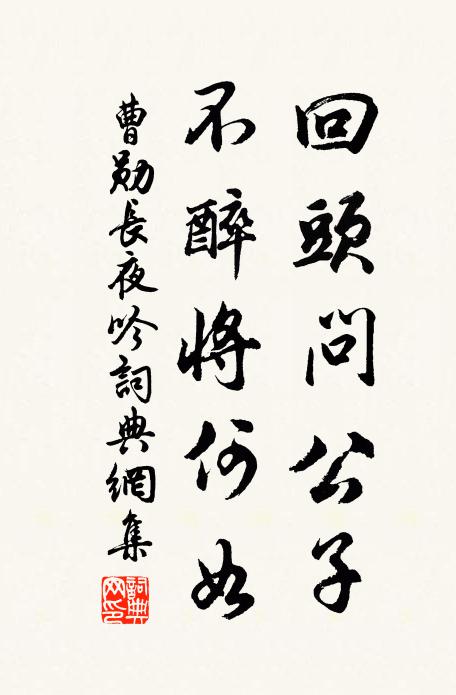 回頭問公子
不醉將何如
曹勛長夜吟詞典網集
詞典網印